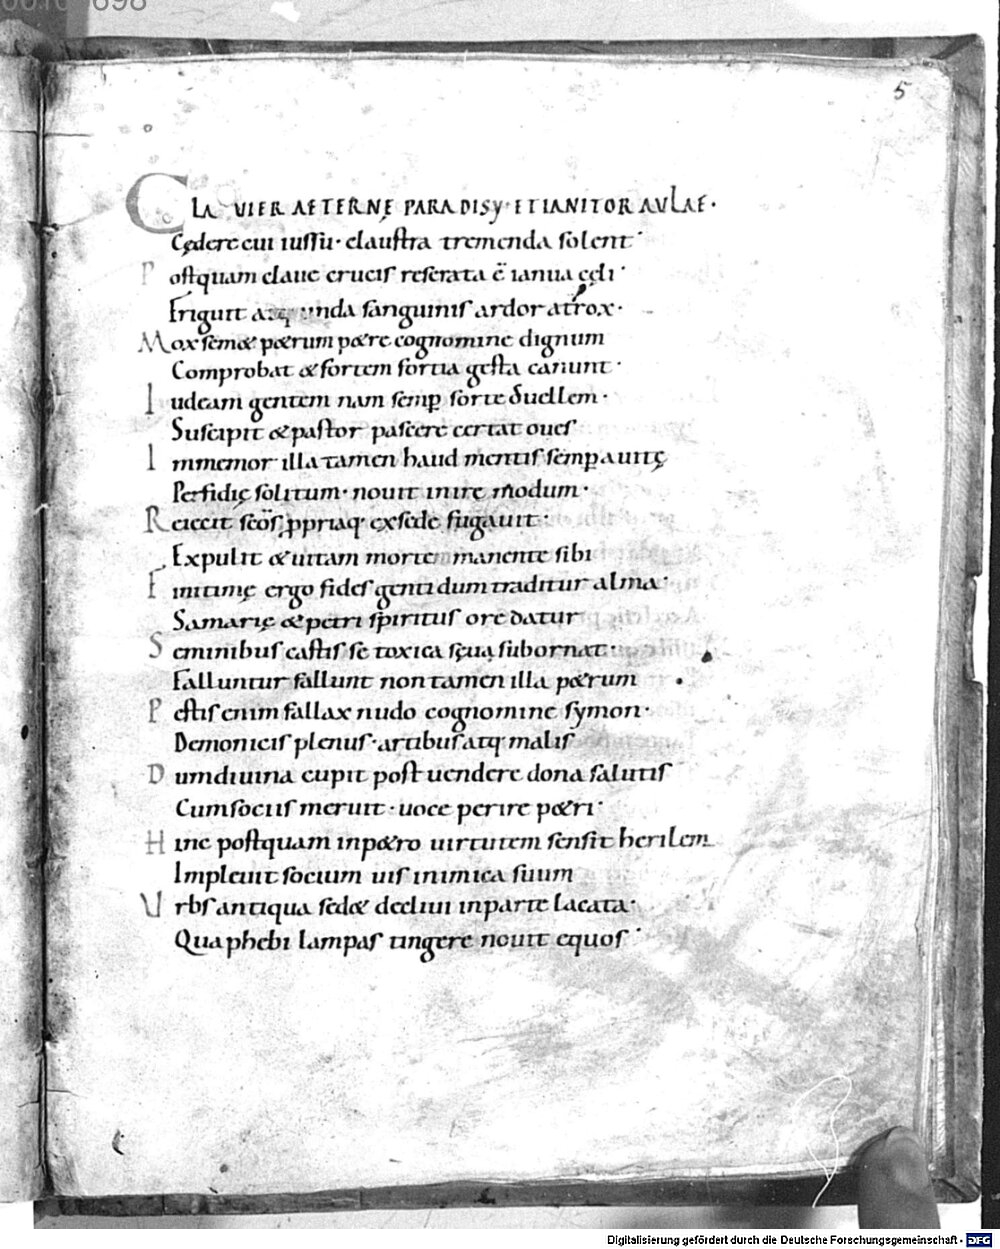 5
CLAVIER AETERNĘ PARADISY· ET IANITOR AVLAE·
Cędere cui iussu· claustra tremenda solent·
Postquam claue crucis reserata ē ianua cęli·
Friguit unda sanguinis ardor atrox·
Mox semet petrum petre cognomine dignum
Comprobat & fortem fortia gesta canunt·
Iudeam gentem nam semp sorte duellem·
Suscipit & pastor pascere certat oues
Immemor illa tamen haud mentis semp auitę
Perfidię solitum· nouit inire modum·
Reiecit scōs, ppriaq· ex sede fugauit·
Expulit & uitam morte manente sibi
Finitimę ergo fides genti dum traditur alma·
Samarię & petri spiritus ore datur
Seminibus castis se toxica sęua subornat·
Falluntur fallunt non tamen illa petrum
Pestis enim fallax nudo cognomine symon·
Demonicis plenus· artibus atq malis
Dum diuina cupit post uendere dona salutis
Cum sociis meruit· uoce perire petri·
Hinc postquam in petro uirtutem sensit herilem
Impleuit socium uis inimica suum
Urbs antiqua sedet decliui in parte locata·
Qua phebi lampas tingere nouit equos·
Digitalisierung gefördert durch die Deutsche Forschungsgemeinschaft - DFG